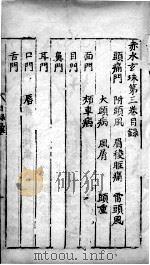 赤水玄珠第三卷目錄
頭痛門 附頭風 眉稜骨痛 雷頭風
大頭病 風屑 頭重
面門 頰車病
目門
鼻門
耳門
口門 唇
舌門